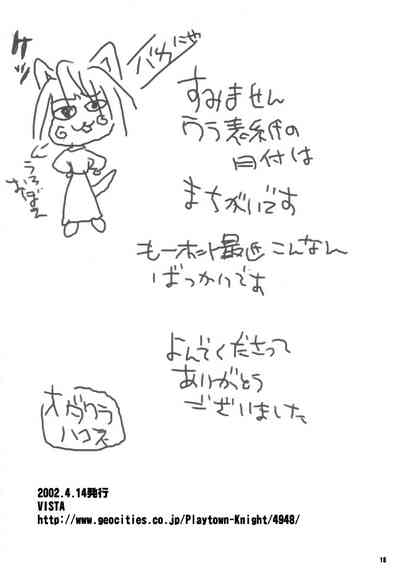 ケッ
バカにゃ
うろ
おぼえ
すみません
ウラ表紙の
日付は
まちがいです
もーホント最近こんなん
ばっかりです
よんでくださって
ありがとう
ございました
オガワラ
ハコス
2002.4.14発行
VISTA
http://www.geocities.co.jp/Playtown-Knight/4948/
18